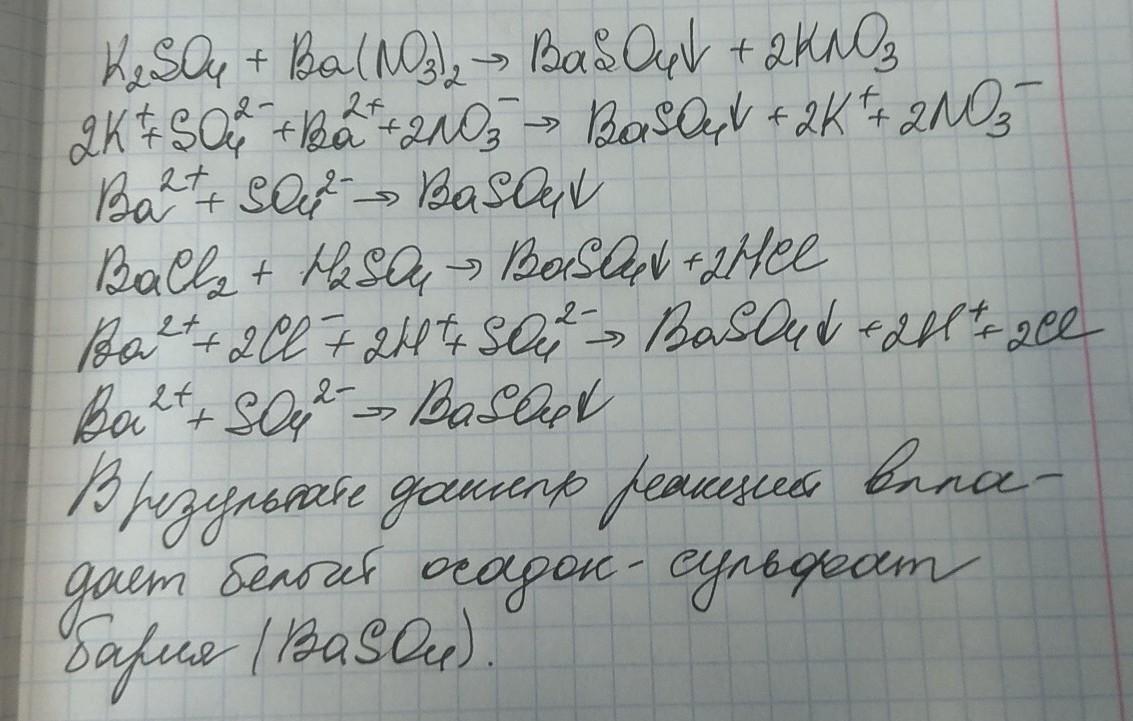 K₂SO₄ + Ba(NO₃)₂ → BaSO₄↓ + 2KNO₃
2K⁺ + SO₄²⁻ + Ba²⁺ + 2NO₃⁻ → BaSO₄↓ + 2K⁺ + 2NO₃⁻
Ba²⁺ + SO₄²⁻ → BaSO₄↓
BaCl₂ + H₂SO₄ → BaSO₄↓ + 2HCl
Ba²⁺ + 2Cl⁻ + 2H⁺ + SO₄²⁻ → BaSO₄↓ + 2H⁺ + 2Cl
Ba²⁺ + SO₄²⁻ → BaSO₄↓
В результате данных реакций выпа-
дает белый осадок - сульфат
бария (BaSO₄).